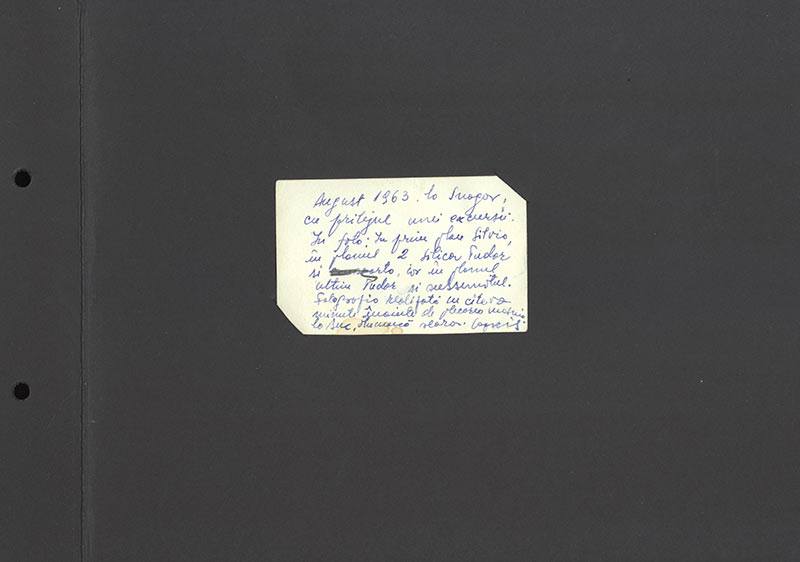 August 1963. la Snagov,
cu prilejul unei excursii.
In foto: In prim plan Silvia,
în planul 2 Silica, Tudor
si iar în planul
ultim Tudor si subsemnatul.
Fotografia realizată cu cîteva
minute înainte de plecarea
la Buc, duminică seara.